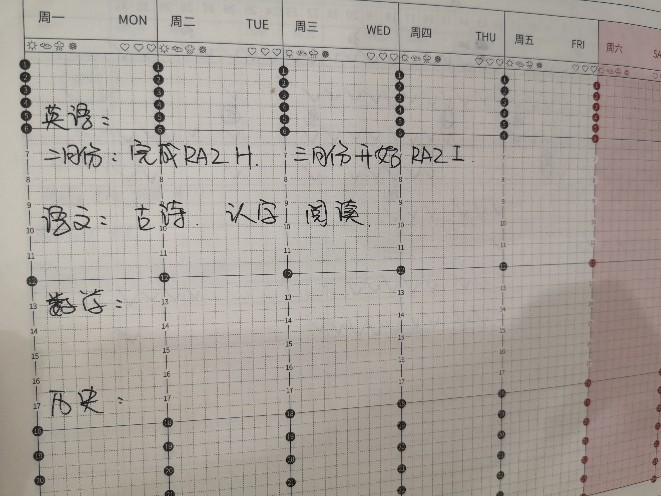 周一 MON 周二 TUE 周三 WED 周四 THU 周五 FRI 周六 SA
英语：
二月份：完成RAZ H. 三月份开始 RAZ I
语文：古诗. 认字 阅读.
数学：
历史：